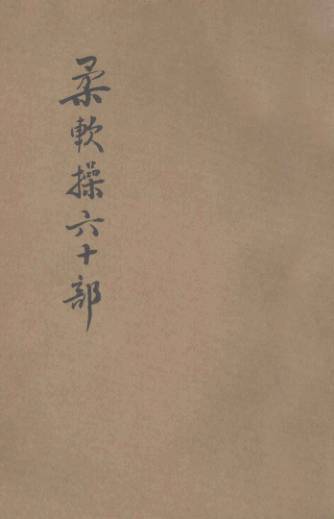 柔軟操六十部